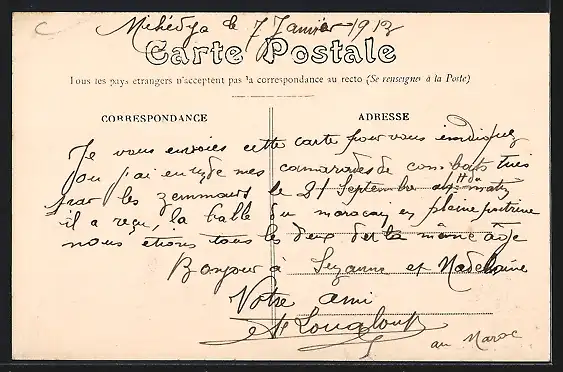 C Mehédya le 7 Janvier 1913
Carte Postale
Tous les pays etrangers n'acceptent pas la correspondance au recto (Se renseigner à la Poste)
CORRESPONDANCE ADRESSE
Je vous envoies cette carte pour vous indiquez
ou j'ai eu mes camarades de combats tués
par les zemmours le 21 Septembre 4 H du matin
il a reçu, la balle du marocain en pleine poitrine
nous étions tous les deux de la même âge
Bonjour à Suzanne et Madeleine
Votre ami
au Maroc